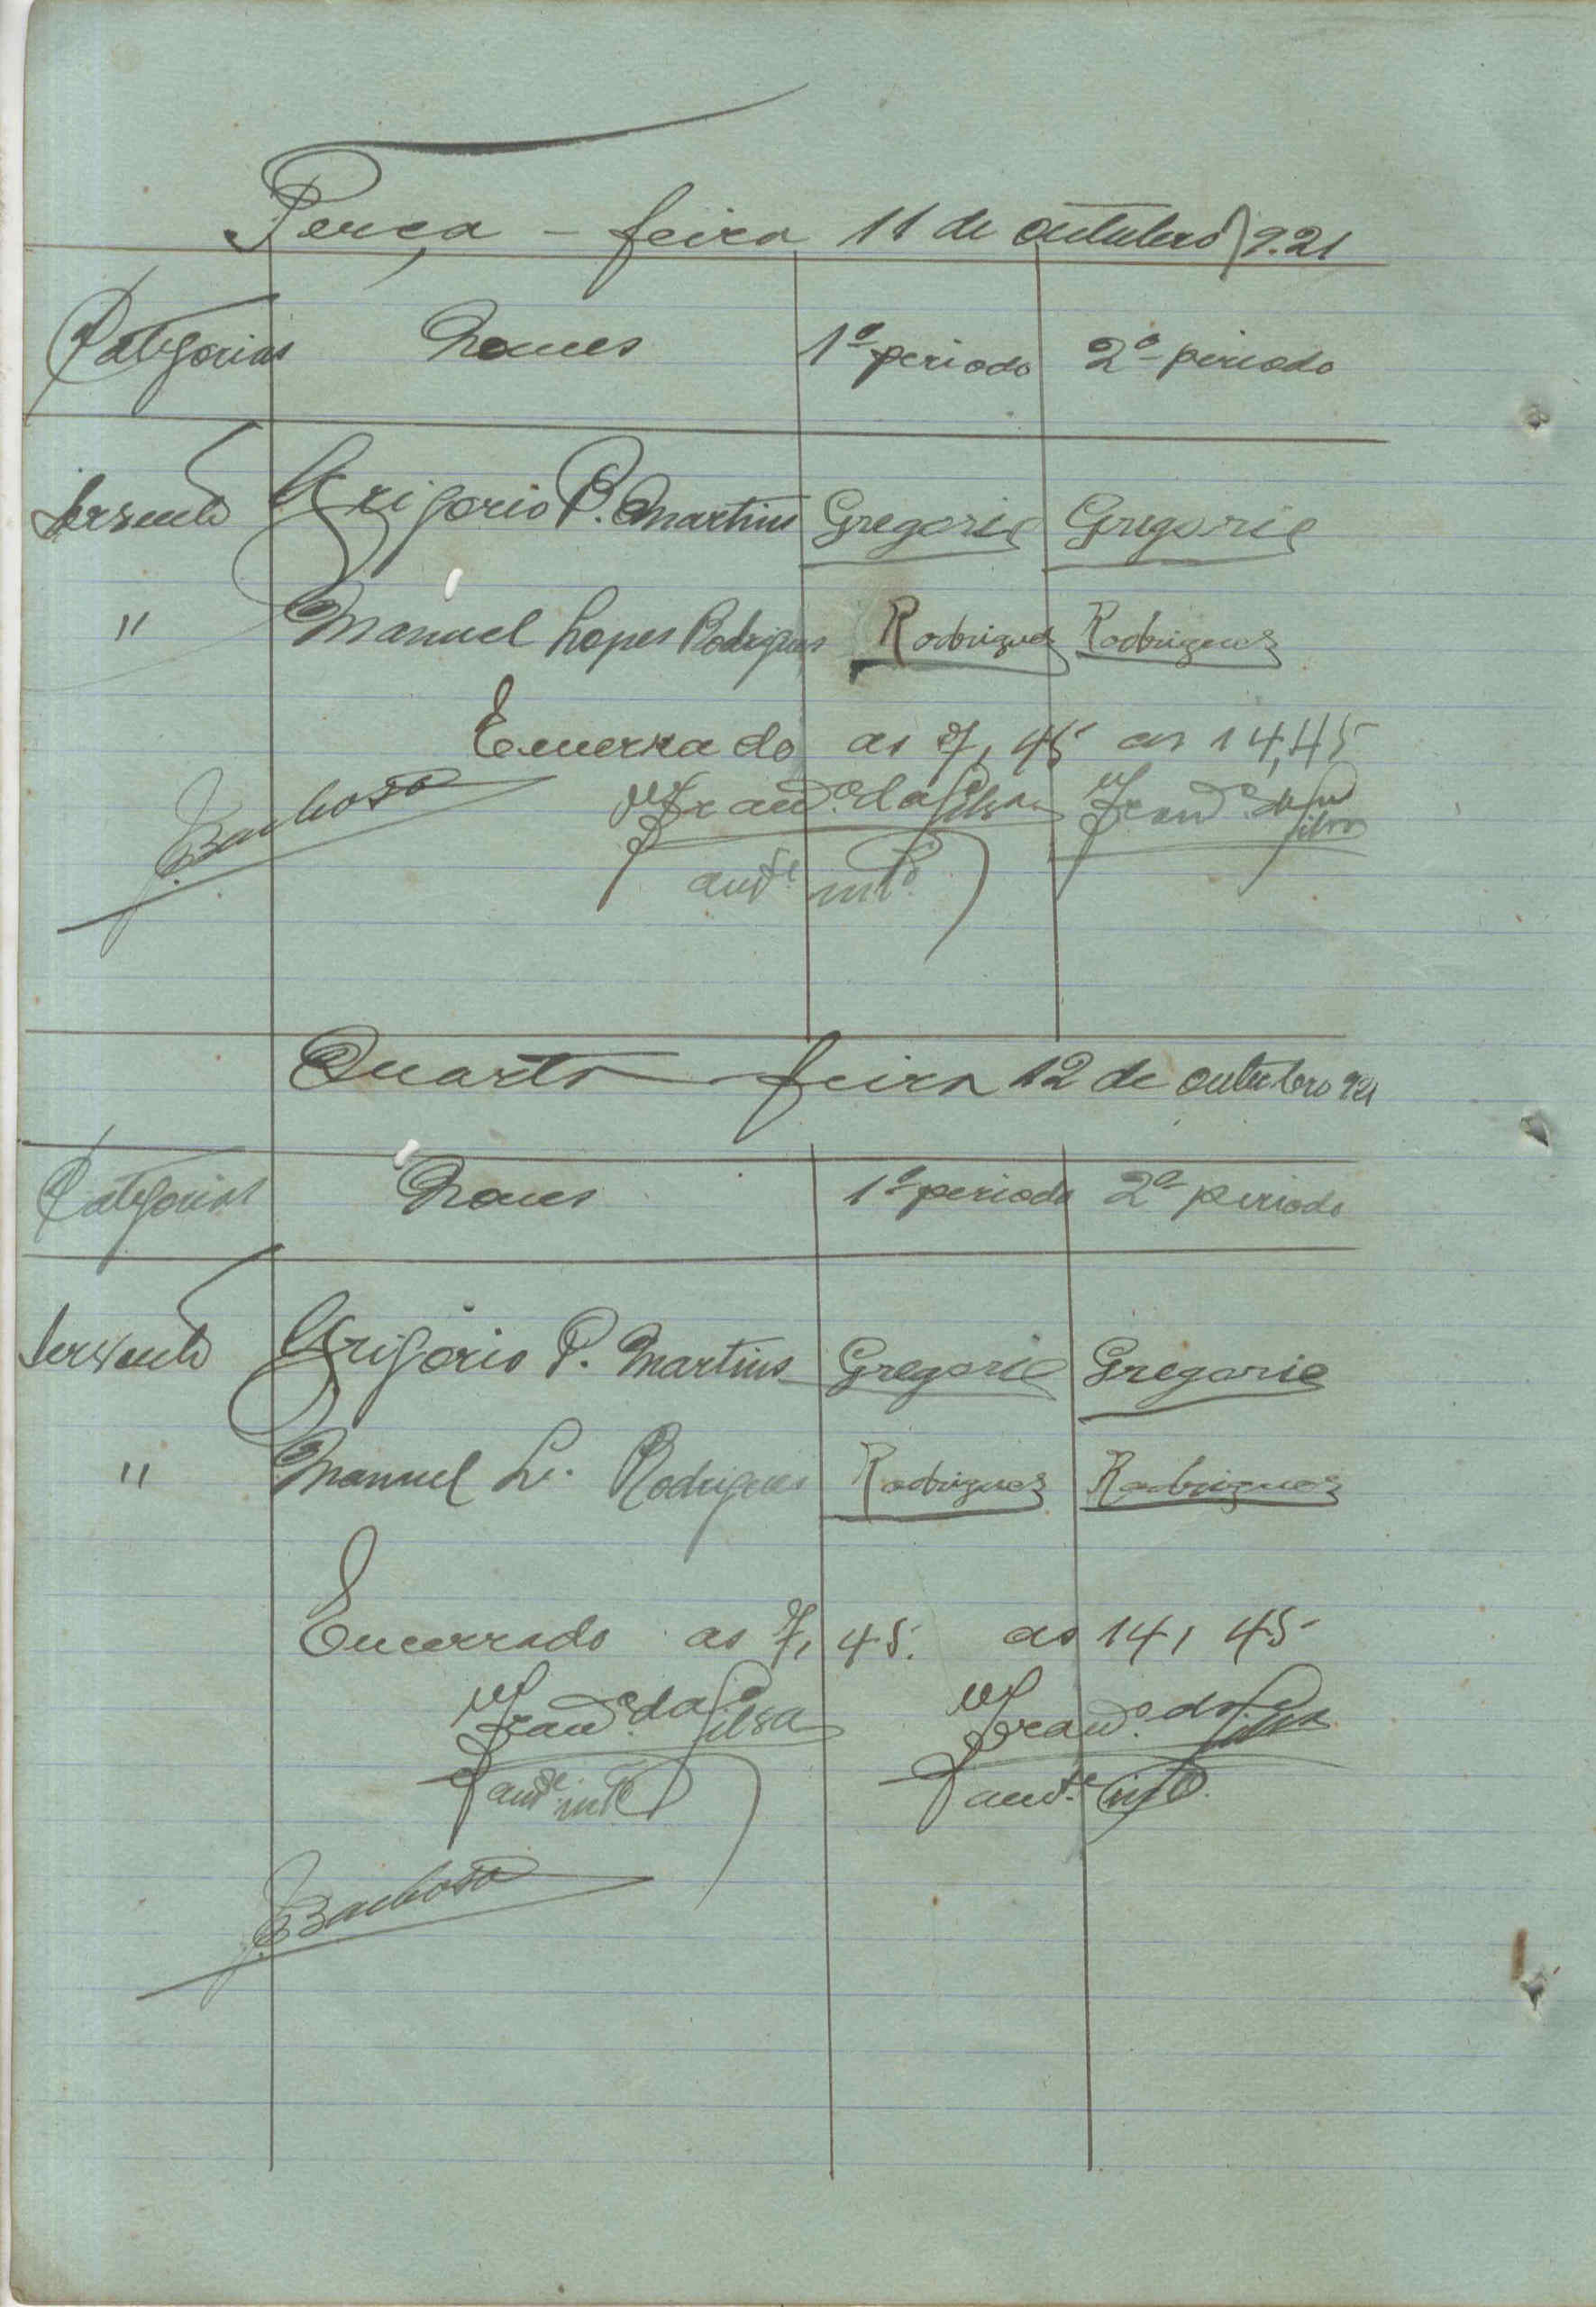 Terça - feira 11 de outubro 921
Categorias Nomes 1º periodo 2º periodo
Servente Grigorio P. Martins Gregorio Gregorio
" Manuel Lopes Rodrigues Rodrigues Rodrigues
Encerrado as 7,45 as 14,45
J. Barbosa da Silva
Quarta feira 12 de outubro 921
Categorias Nomes 1º periodo 2º periodo
Servente Grigorio P. Martins Gregorio Gregorio
" Manuel L. Rodrigues Rodrigues Rodrigues
Encerrado as 7,45. as 14,45
da Silva da Silva
J. Barbosa